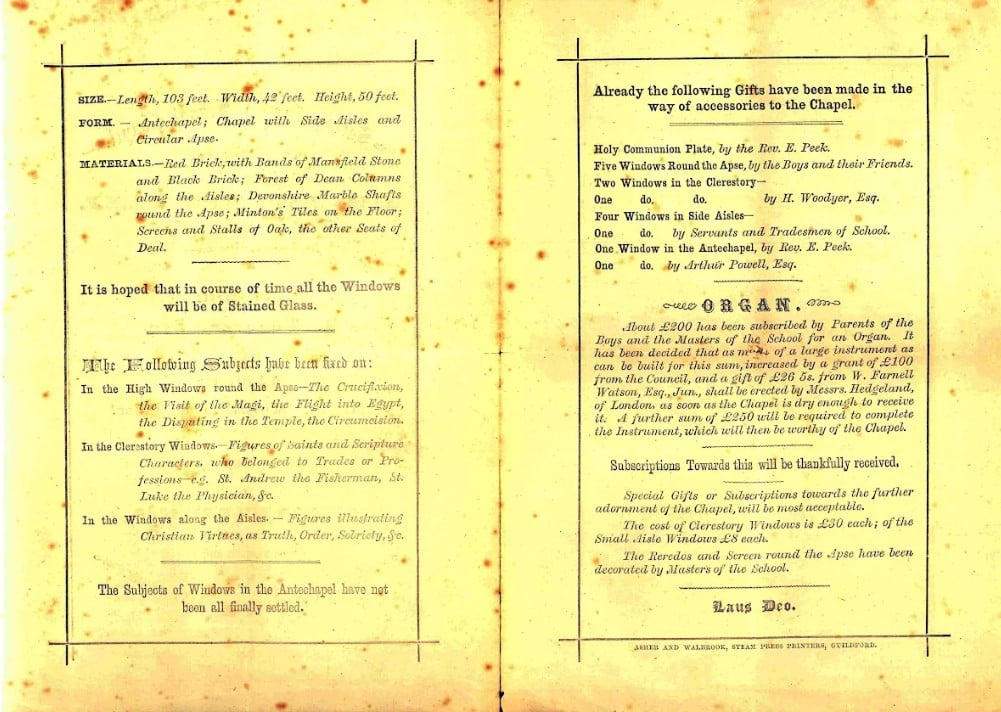 SIZE.—Length, 103 feet. Width, 42 feet. Height, 50 feet.
FORM. — Antechapel; Chapel with Side Aisles and
Circular Apse.
MATERIALS.—Red Brick, with Bands of Mansfield Stone
and Black Brick; Forest of Dean Columns
along the Aisles; Devonshire Marble Shafts
round the Apse; Minton's Tiles on the Floor;
Screens and Stalls of Oak, the other Seats of
Deal.
It is hoped that in course of time all the Windows
will be of Stained Glass.
The Following Subjects have been fixed on:
In the High Windows round the Apse—The Crucifixion,
the Visit of the Magi, the Flight into Egypt,
the Disputing in the Temple, the Circumcision.
In the Clerestory Windows.—Figures of Saints and Scripture
Characters, who belonged to Trades or Pro-
fessions—e.g. St. Andrew the Fisherman, St.
Luke the Physician, &c.
In the Windows along the Aisles. — Figures illustrating
Christian Virtues, as Truth, Order, Sobriety, &c.
The Subjects of Windows in the Antechapel have not
been all finally settled.
Already the following Gifts have been made in the
way of accessories to the Chapel.
Holy Communion Plate, by the Rev. E. Peek.
Five Windows Round the Apse, by the Boys and their Friends.
Two Windows in the Clerestory—
One do. do. by H. Woodyer, Esq.
Four Windows in Side Aisles—
One do. by Servants and Tradesmen of School.
One Window in the Antechapel, by Rev. E. Peek.
One do. by Arthur Powell, Esq.
ORGAN.
About £200 has been subscribed by Parents of the
Boys and the Masters of the School for an Organ. It
has been decided that as of a large instrument as
can be built for this sum, increased by a grant of £100
from the Council, and a gift of £26 5s. from W. Farnell
Watson, Esq., Jun., shall be erected by Messrs. Hedgeland,
of London, as soon as the Chapel is dry enough to receive
it. A further sum of £250 will be required to complete
the Instrument, which will then be worthy of the Chapel.
Subscriptions Towards this will be thankfully received.
Special Gifts or Subscriptions towards the further
adornment of the Chapel, will be most acceptable.
The cost of Clerestory Windows is £30 each; of the
Small Aisle Windows £8 each.
The Reredos and Screen round the Apse have been
decorated by Masters of the School.
Laus Deo.
ASHER AND WALBROOK, STEAM PRESS PRINTERS, GUILDFORD.